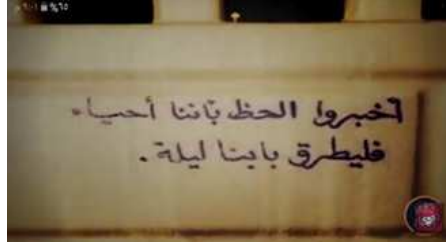 أخبروا الحظ بأننا أحياء
فليطرق بابنا ليلة.